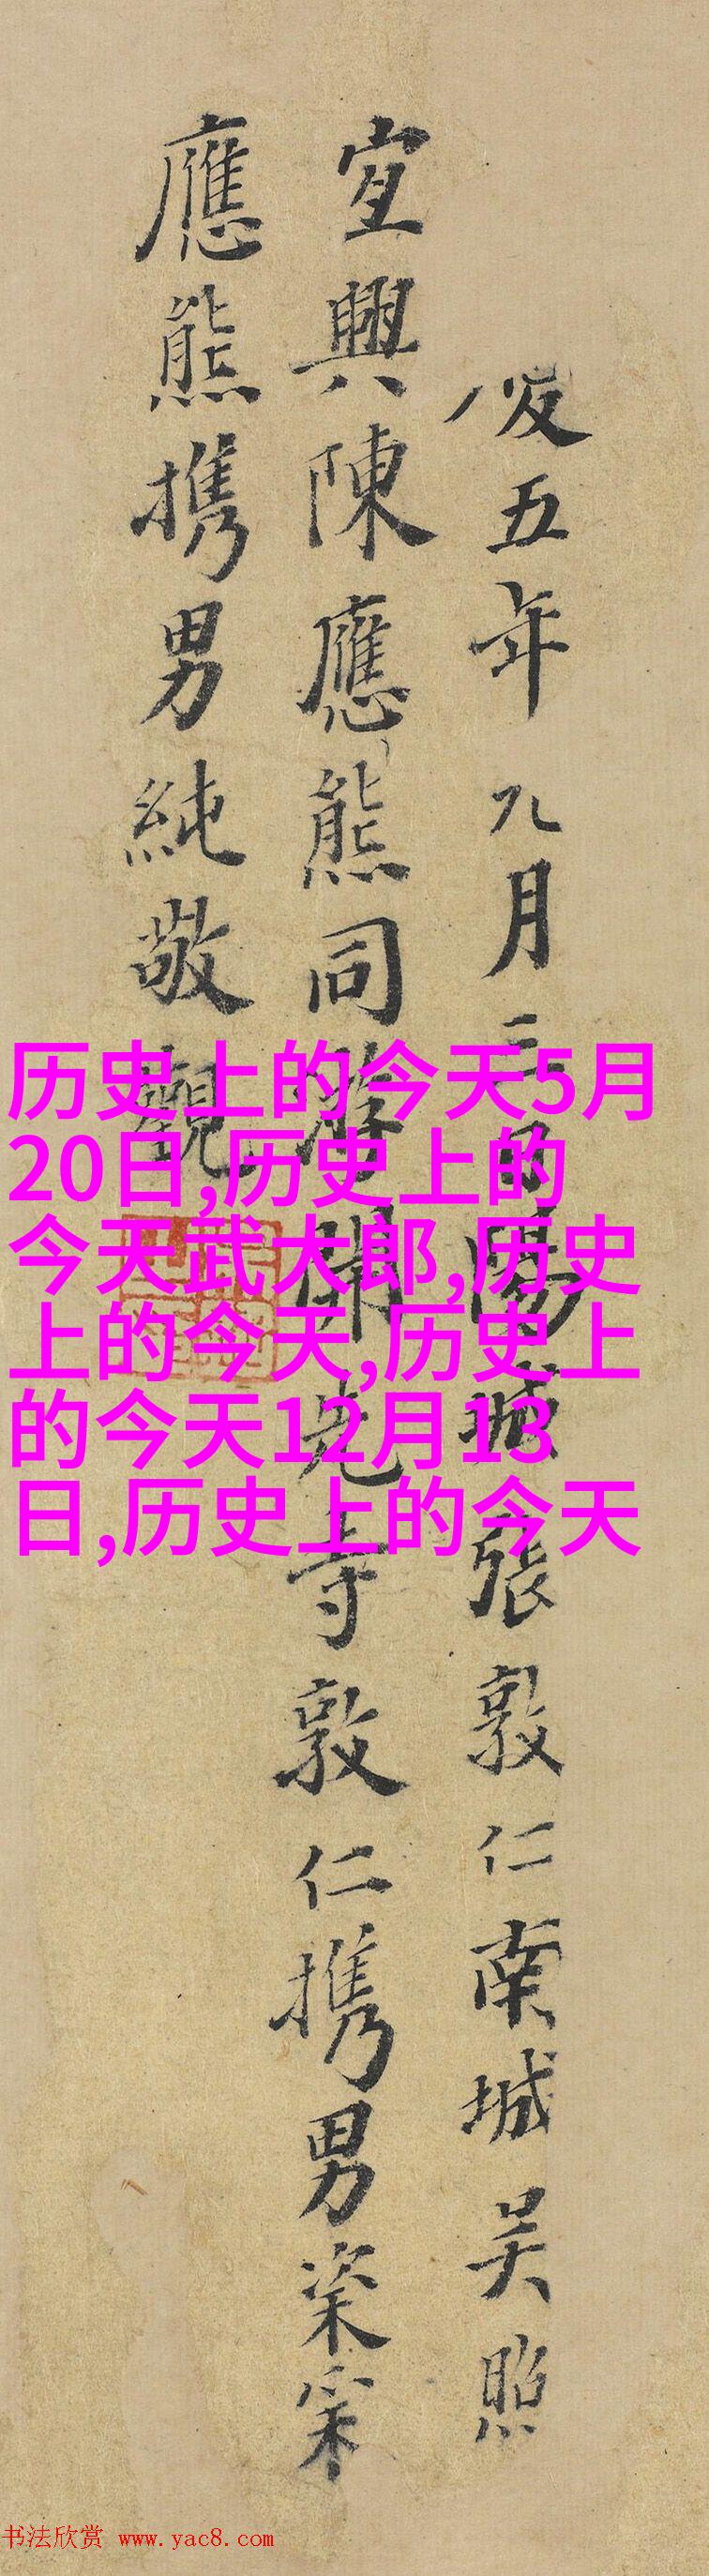 五年九月三日陽城張敦仁南城吴照
宜興陳應熊同游開先寺敦仁携男粢寀
應熊携男純敬觀
历史上的今天5月
20日,历史上的
今天武大郎,历史
上的今天,历史上
的今天12月13
日,历史上的今天
书法欣赏 www.yac8.com